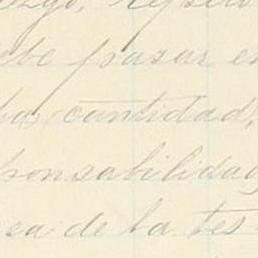 ebe pasar en
ha cantidad,
ponsabilidad
ea de la tes